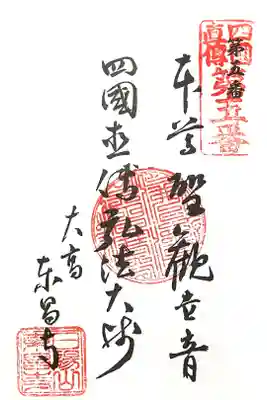 第五番
本尊 聖觀世音
四國直傳弘法大師
大高
東昌寺